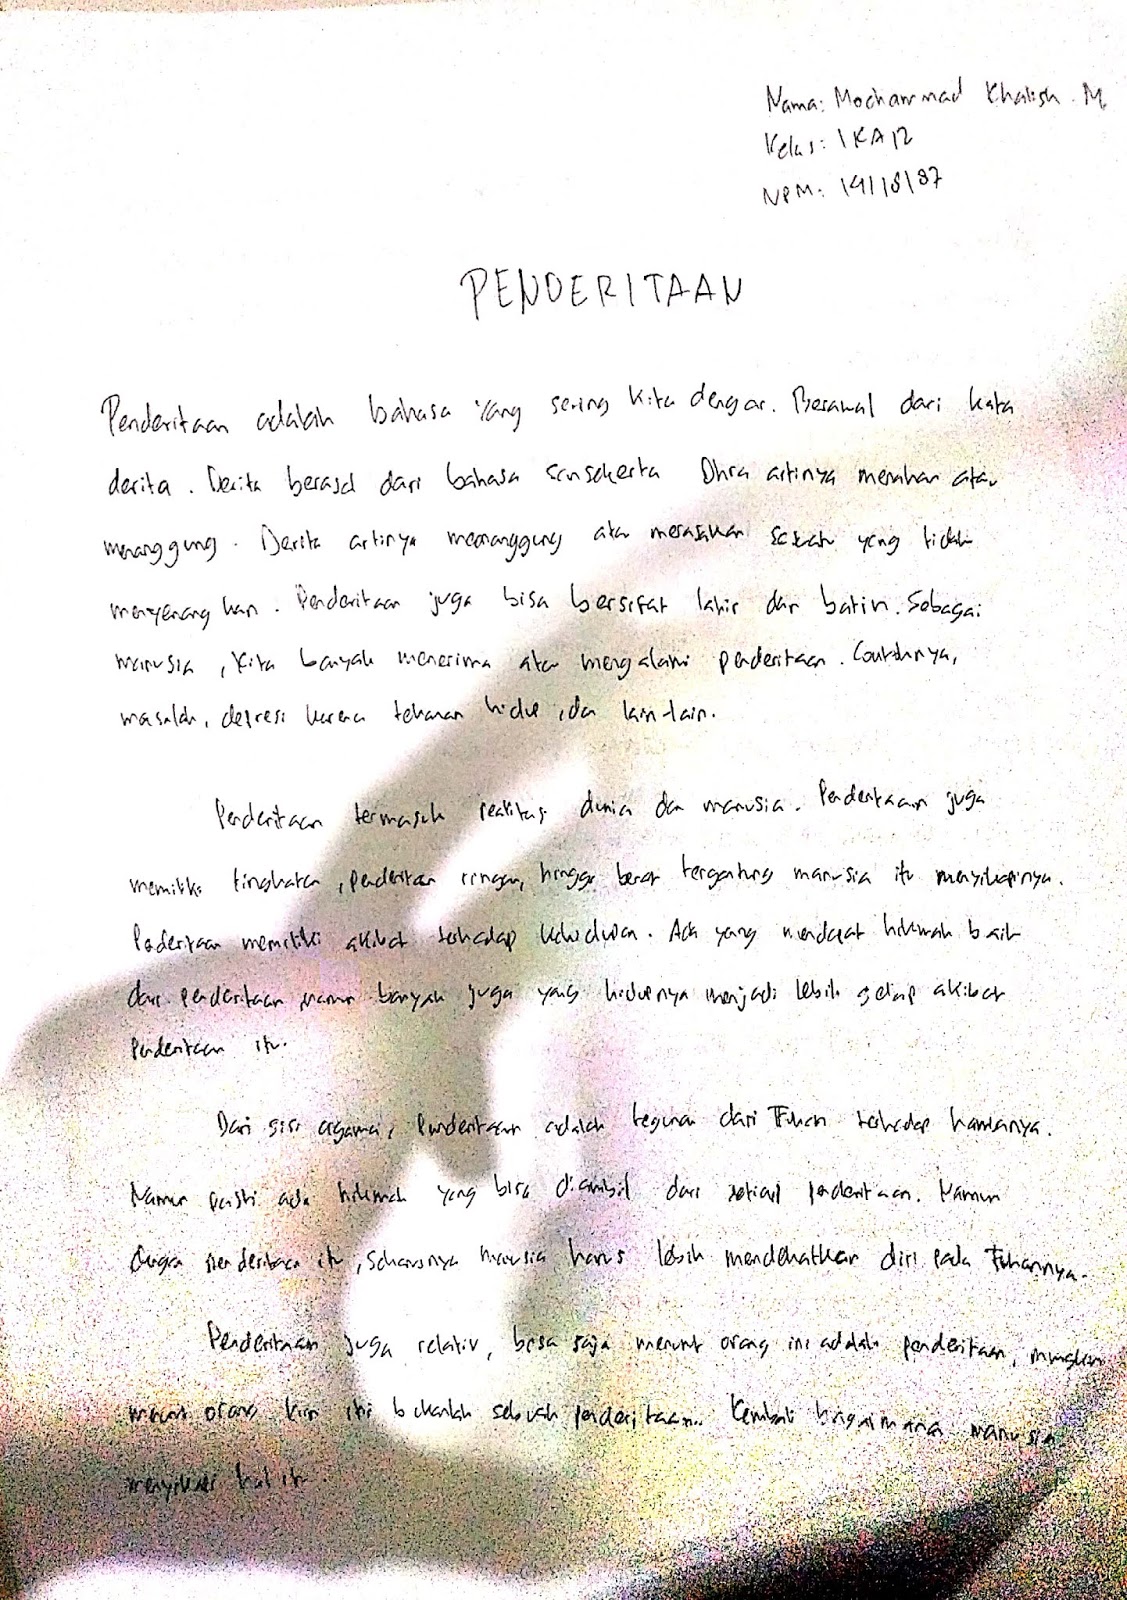 Nama: Mochammad Khalish. M
Kelas: 1KA12
NPM: 14118187
PENDERITAAN
Penderitaan adalah bahasa yang sering kita dengar. Berawal dari kata
derita. Derita berasal dari bahasa sansekerta Dhra artinya menahan atau
menanggung. Derita artinya menanggung atau merasakan sesuatu yang tidak
menyenangkan. Penderitaan juga bisa bersifat lahir dan batin. Sebagai
manusia, kita banyak menerima atau mengalami penderitaan. Contohnya,
masalah, depresi karena tekanan hidup, dan lain-lain.
Penderitaan termasuk realitas dunia dan manusia. Penderitaan juga
memiliki tingkatan, penderitaan ringan, hingga berat tergantung manusia itu menyikapinya.
Penderitaan memiliki akibat terhadap kehidupan. Ada yang mendapat hikmah baik
dari penderitaan namun banyak juga yang hidupnya menjadi lebih gelap akibat
Penderitaan itu.
Dari sisi agama, Penderitaan adalah teguran dari Tuhan terhadap hambanya.
Namun pasti ada hikmah yang bisa diambil dari setiap penderitaan. Namun
dengan penderitaan itu, seharusnya manusia harus lebih mendekatkan diri pada Tuhannya.
Penderitaan juga relativ, bisa saja menurut orang ini adalah penderitaan, mungkin
menurut orang lain itu bukanlah sebuah penderitaan. Kembali bagaimana manusia
menyikapi hal itu.